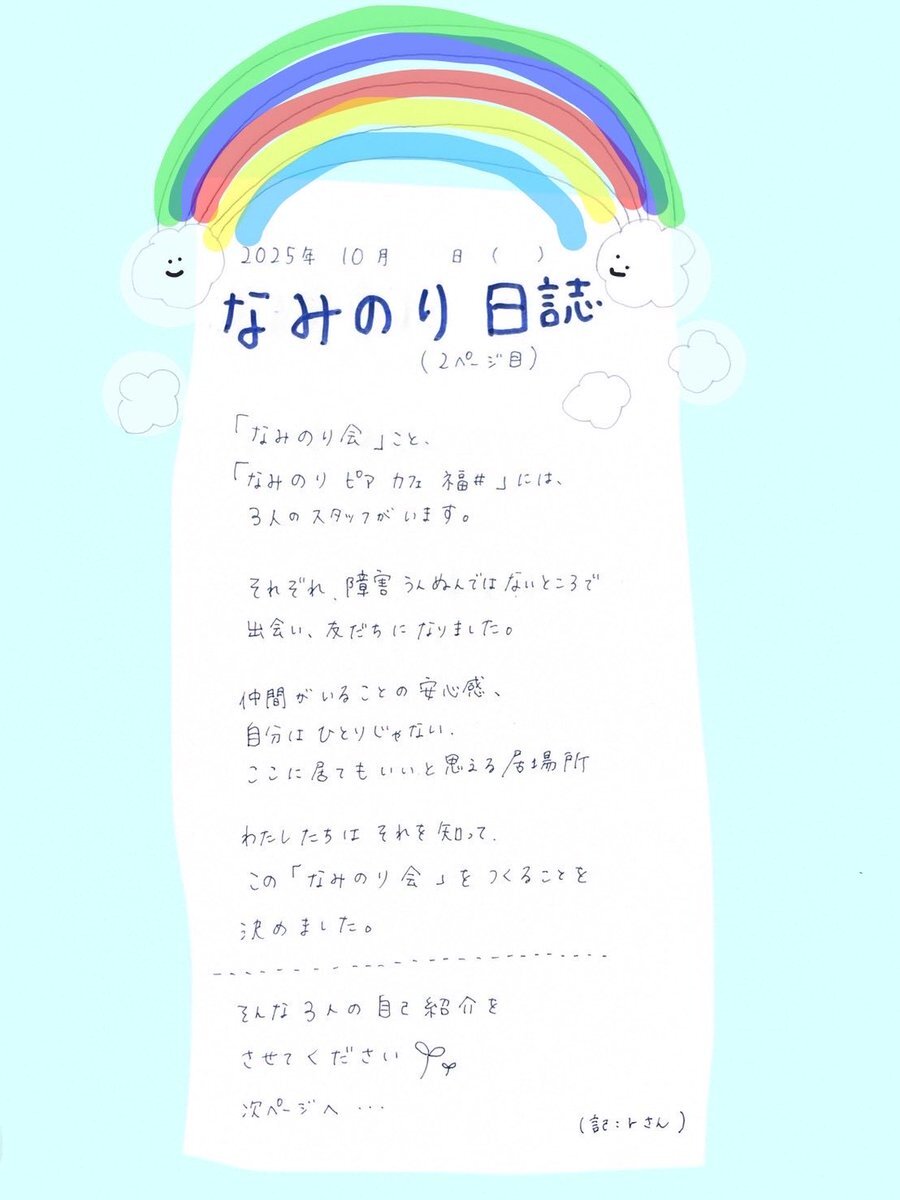 2025年 10月　　日（　）
なみのり 日誌
（2ページ目）
「なみのり会」こと、
「なみのり ピア カフェ 福井」には、
3人のスタッフがいます。
それぞれ、障害うんぬんではないところで
出会い、友だちになりました。
仲間がいることの安心感、
自分はひとりじゃない、
ここに居てもいいと思える居場所
わたしたちは それを知って、
この「なみのり会」をつくることを
決めました。
そんな3人の自己紹介を
させてください
次ページへ …
（記：トさん）